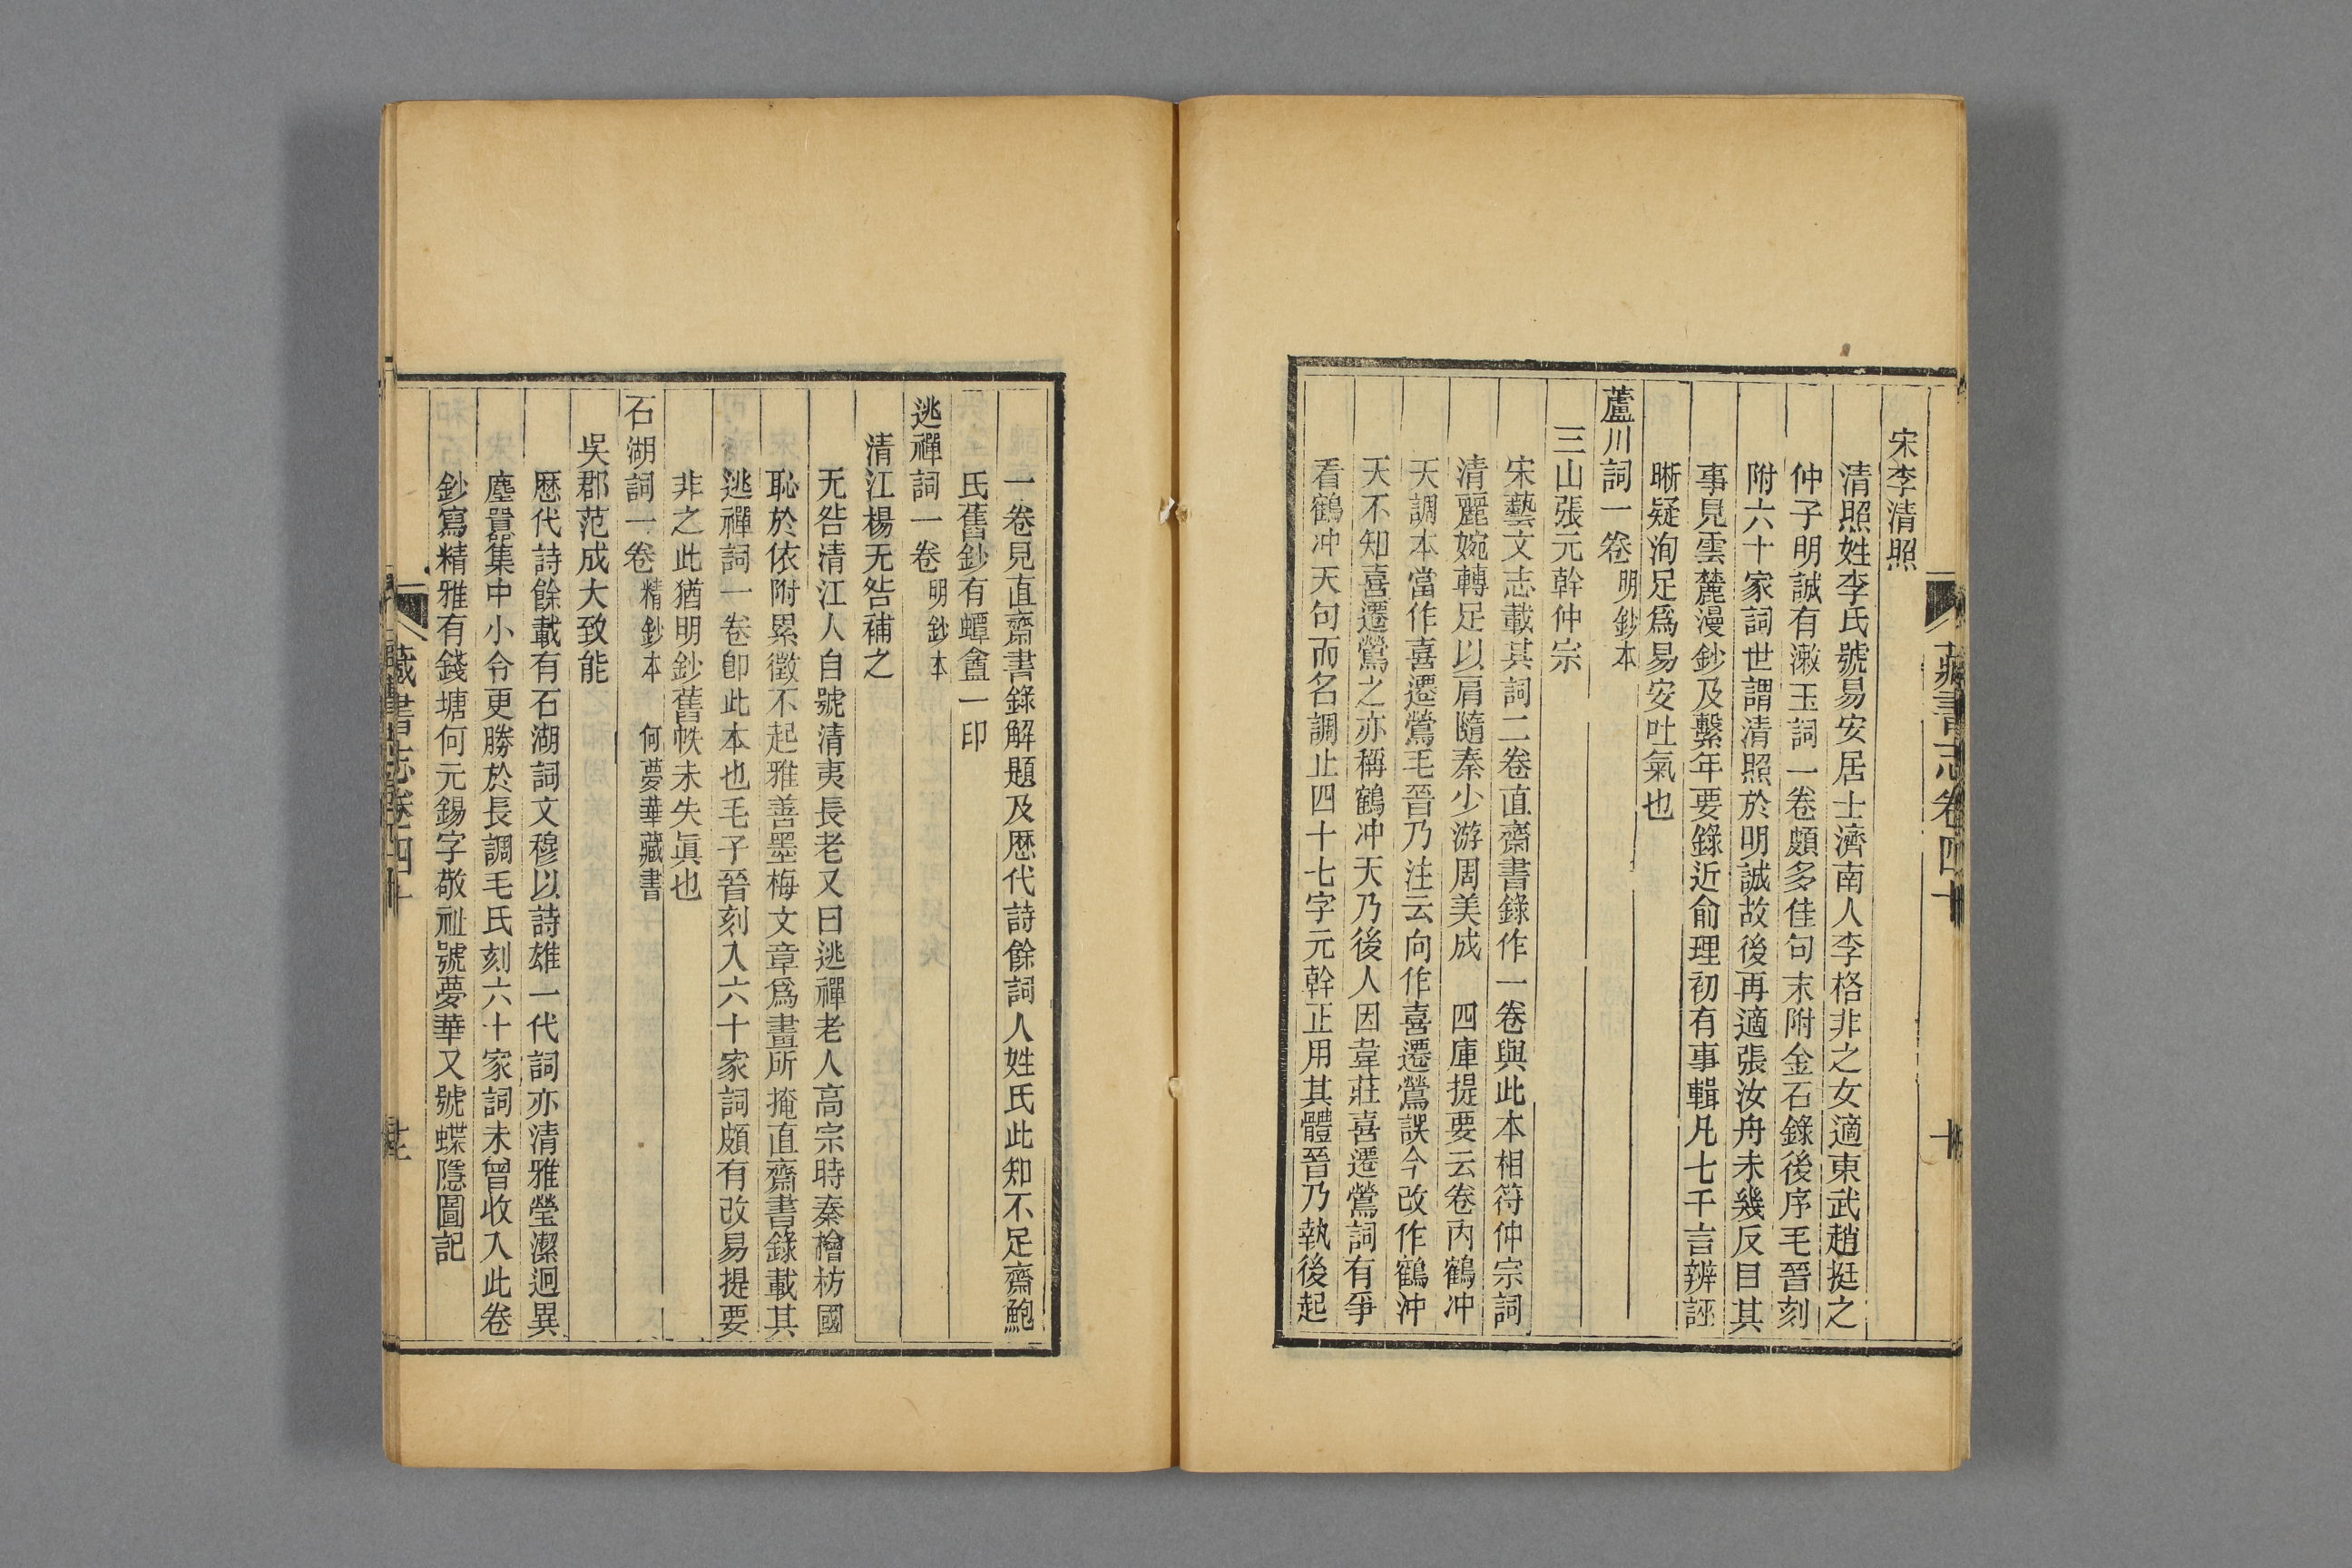 藏書志卷四十
宋李清照
清照姓李氏號易安居士濟南人李格非之女適東武趙挺之
仲子明誠有漱玉詞一卷頗多佳句末附金石錄後序毛晉刻
附六十家詞世謂清照於明誠故後再適張汝舟未幾反目其
事見雲麓漫鈔及繫年要錄近俞理初有事輯凡七千言辨誣
晰疑洵足爲易安吐氣也
蘆川詞一卷 明鈔本
三山張元幹仲宗
宋藝文志載其詞二卷直齋書錄作一卷與此本相符仲宗詞
清麗婉轉足以肩隨秦少游周美成 四庫提要云卷內鶴冲
天調本當作喜遷鶯毛晉乃注云向作喜遷鶯誤今改作鶴沖
天不知喜遷鶯之亦稱鶴冲天乃後人因韋莊喜遷鶯詞有爭
看鶴冲天句而名調止四十七字元幹正用其體晉乃執後起
一卷見直齋書錄解題及歷代詩餘詞人姓氏此知不足齋鮑
氏舊鈔有蟫盦一印
逃禪詞一卷 明鈔本
清江楊无咎補之
无咎清江人自號清夷長老又曰逃禪老人高宗時秦檜枋國
恥於依附累徵不起雅善墨梅文章爲畫所掩直齋書錄載其
逃禪詞一卷卽此本也毛子晉刻入六十家詞頗有改易提要
非之此猶明鈔舊帙未失眞也
石湖詞一卷 精鈔本 何夢華藏書
吳郡范成大致能
歷代詩餘載有石湖詞文穆以詩雄一代詞亦清雅瑩潔迥異
塵囂集中小令更勝於長調毛氏刻六十家詞未曾收入此卷
鈔寫精雅有錢塘何元錫字敬祉號夢華又號蝶隱圖記
藏書志卷四十